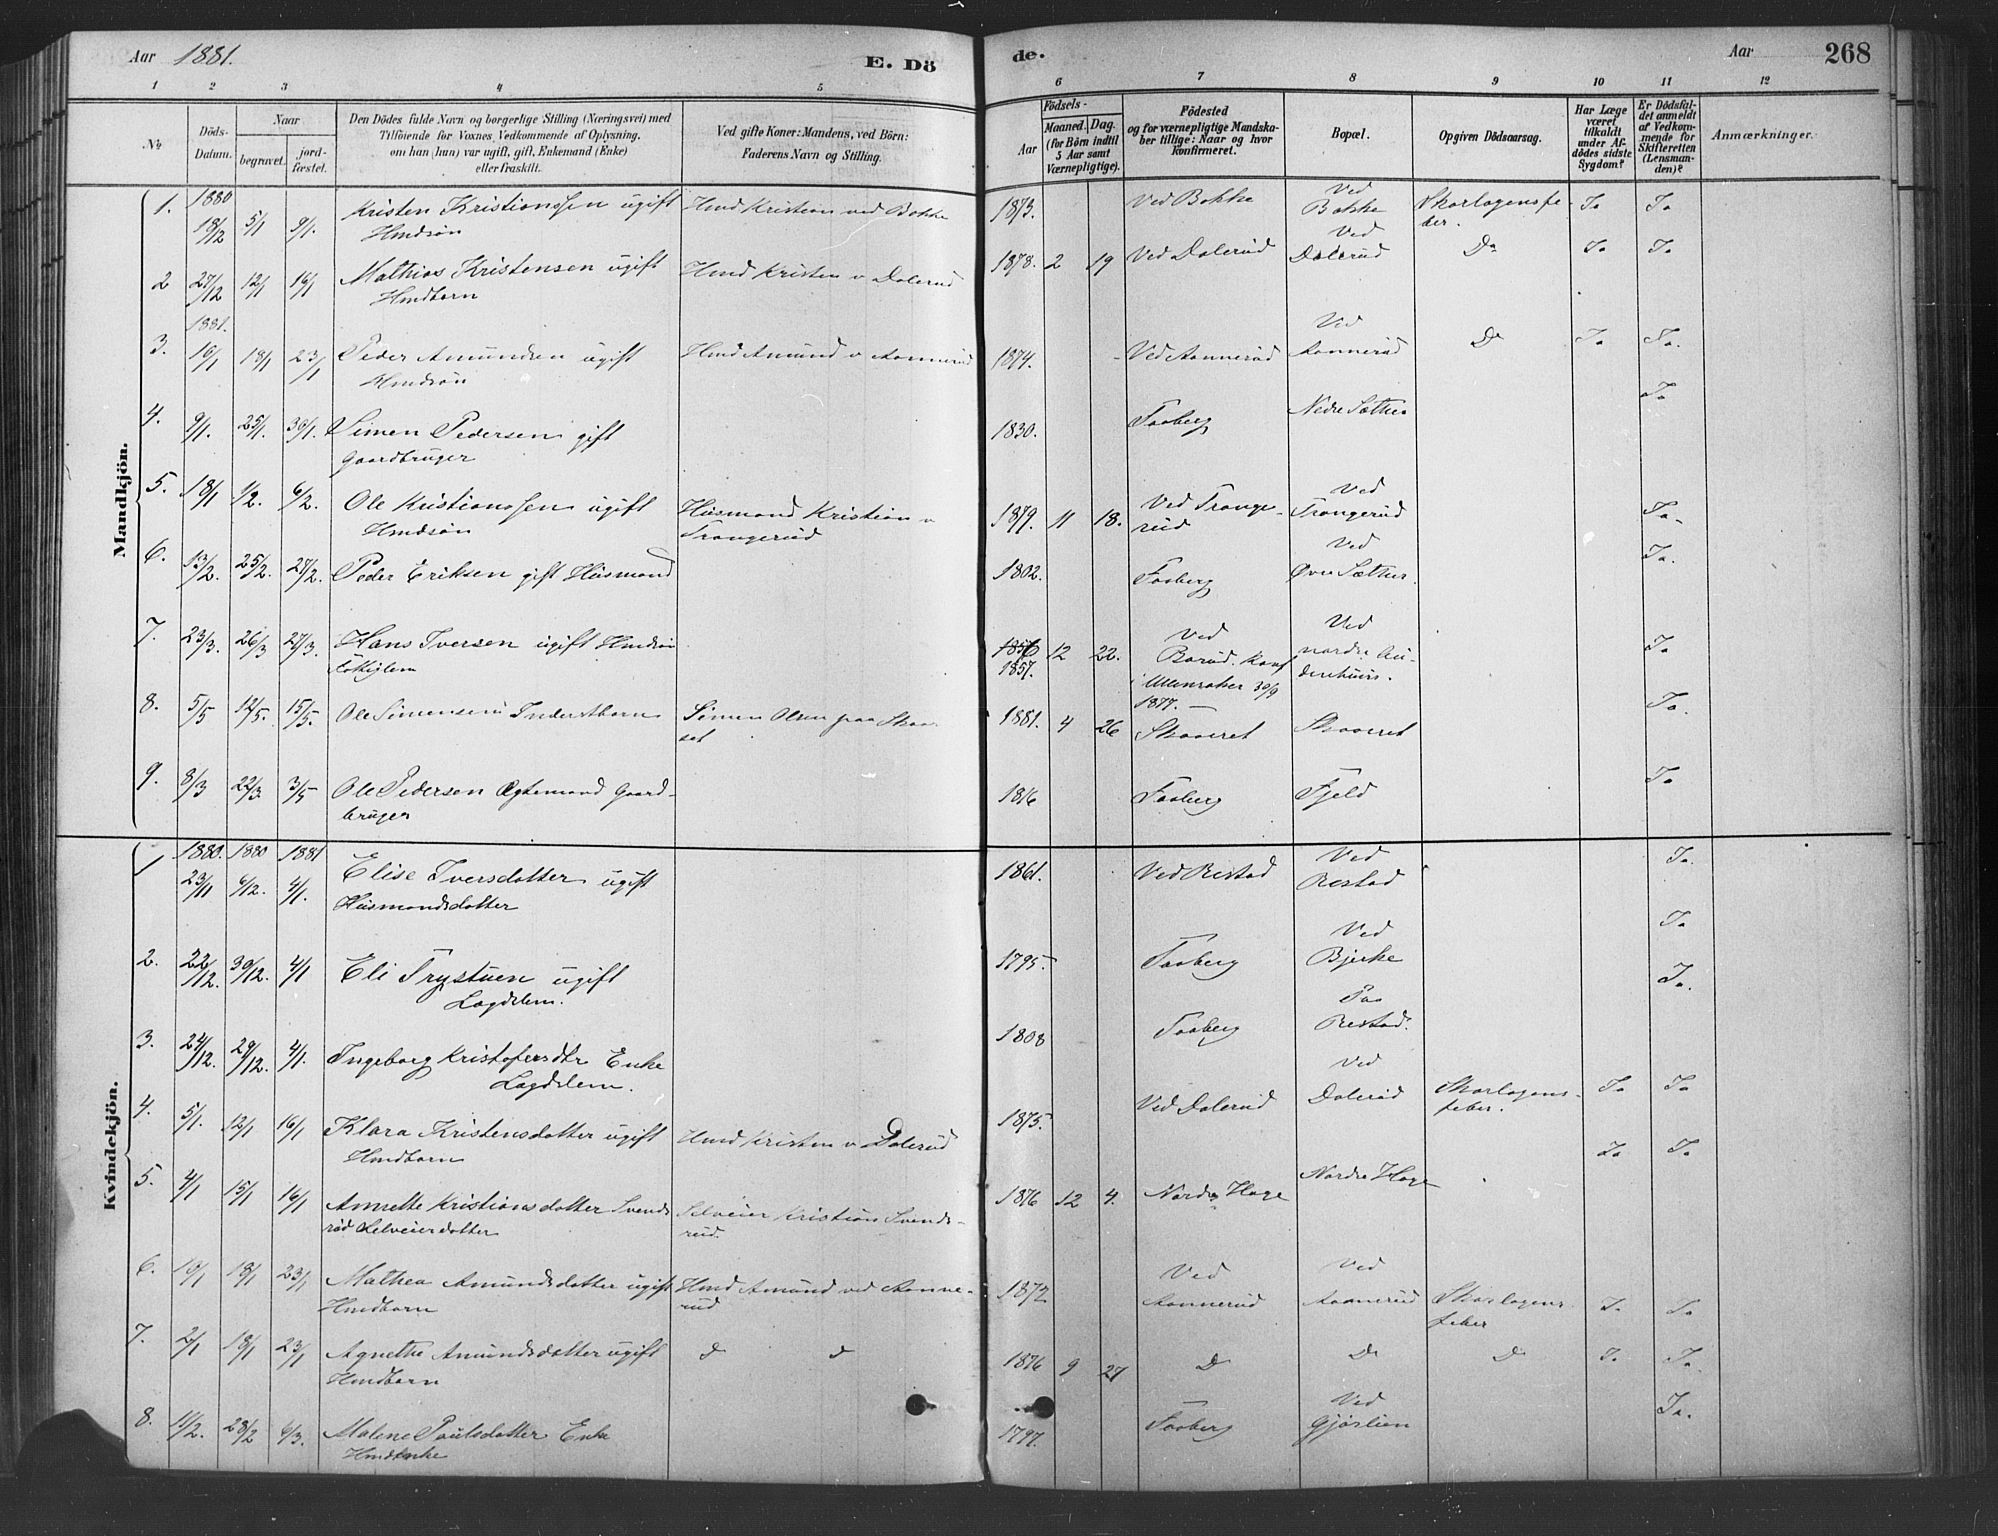 Aar 1881.
E. Dö
de.
Aar
268
1 2 3 4 5 6 7 8 9 10 11 12
№
Döds-Datum.
Naar
begravet.
jord-fæstet.
Den Dödes fulde Navn og borgerlige Stilling (Næringsvei) med
Tilföiende for Voxnes Vedkommende af Oplysning.
om han (hun) var ugift, gift, Enkemand (Enke)
eller fraskilt.
Ved gifte Koner: Mandens, ved Börn:
Faderens Navn og Stilling.
Födsels-
Aar
Maaned. Dag.
(for Börn indtil
5 Aar samt
Værnepligtige).
Födested
og for værnepligtige Mandska-
ber tillige: Naar og hvor
konfirmeret.
Bopæl.
Opgiven Dödsaarsag.
Har Læge
været
tilkaldt
under Af-
dödes sidste
Sygdom?
Er Dödsfal-
det anmeldt
af Vedkom-
mende for
Skifteretten
(Lensman-
den)?
Anmærkninger.
Mandkjön.
1. 1880 18/12 5/1 9/1. Kristen Kristianssen ugift Hmd Kristian ved Bakke 1873. Ved Bakke Ved Bakke Skarlagensfe- Ja Ja
Hmdsøn ber.
2 27/12 12/1 16/1 Mathias Kristensen ugift Hmd Kristen v Dalerud 1878. 2 19 Ved Dalerud Ved Dalerud Do Ja Ja
Hmdbarn
1881.
3. 16/1 18/1 23/1 Peder Amundsen ugift Hmd Amund v Aannerud 1874. Ved Aannerud Ved Aannerud Do Ja Ja.
Hmdsøn
4. 9/1. 25/1. 30/1. Simen Pedersen gift 1830. Faaberg Nedre Sæther Ja
Gaardbruger
5. 18/1 1/2. 6/2. Ole Kristianssen ugift Husmand Kristian v 1879. 11 18. Ved Trange- Ved Ja.
Hmdsøn Trangerud rud Trangerud
6. 13/2. 25/2. 27/2. Peder Eriksen gift Husmand 1802. Faaberg Ved Øvre Sæther. Ja.
7. 23/3. 26/3 27/3. Hans Iversen ugift Hmdsøn 1856 12 22. Ved Ved Ja
1857. Barud. Konf nordre Au-
i Ullensaker 30/9 denhuus.
1877.
8. 5/5 12/5. 15/5. Ole Simensen Inderstbarn Simen Olsen paa Skaa- 1881. 4 26 Skaaret Skaaret Ja.
ret
9. 8/3 22/3. 3/5 Ole Pedersen Ægtemand Gaard- 1816 Faaberg Fjeld Ja
bruger
Kvindekjön.
1 1880. 1880 1881
23/11 6/12. 4/1. Elise Iversdatter ugift 1861. Ved Restad Ved Restad Ja.
Husmandsdatter
2. 22/12. 30/12. 4/1 Eli Trystuen ugift 1795. Faaberg Ved Bjerke Ja
Lægdslem.
3. 24/12. 29/12. 4/1. Ingeborg Kristofersdtr Enke 1808 Faaberg Paa Restad. Ja.
Lægdslem.
4. 5/1. 12/1 16/1 Klara Kristensdatter ugift Hmd Kristen v Dalerud 1875. Ved Dalerud Ved Dalerud Skarlagens- Ja Ja
Hmdbarn feber.
5. 4/1 15/1 16/1 Annette Kristiansdatter Svends Selveier Kristian Svends- 1876 12 4. Nordre Hage Nordre Hage Ja Ja
rud Selveierdatter rud.
6. 16/1 18/1 23/1 Mathea Amundsdatter ugift Hmd Amund ved Aanne- 1872 Ved Ved Skarlagens- Ja Ja
Hmdbarn rud Aannerud Aannerud feber
7. 2/1 18/1 23/1 Agnethe Amundsdatter ugift d d 1876 9 27 Do Do Do Ja Ja.
Hmdbarn
8. 11/2. 28/2 6/3. Malene Paulsdatter Enke 1797. Faaberg Ved Gjørlien Ja.
Hmdenke